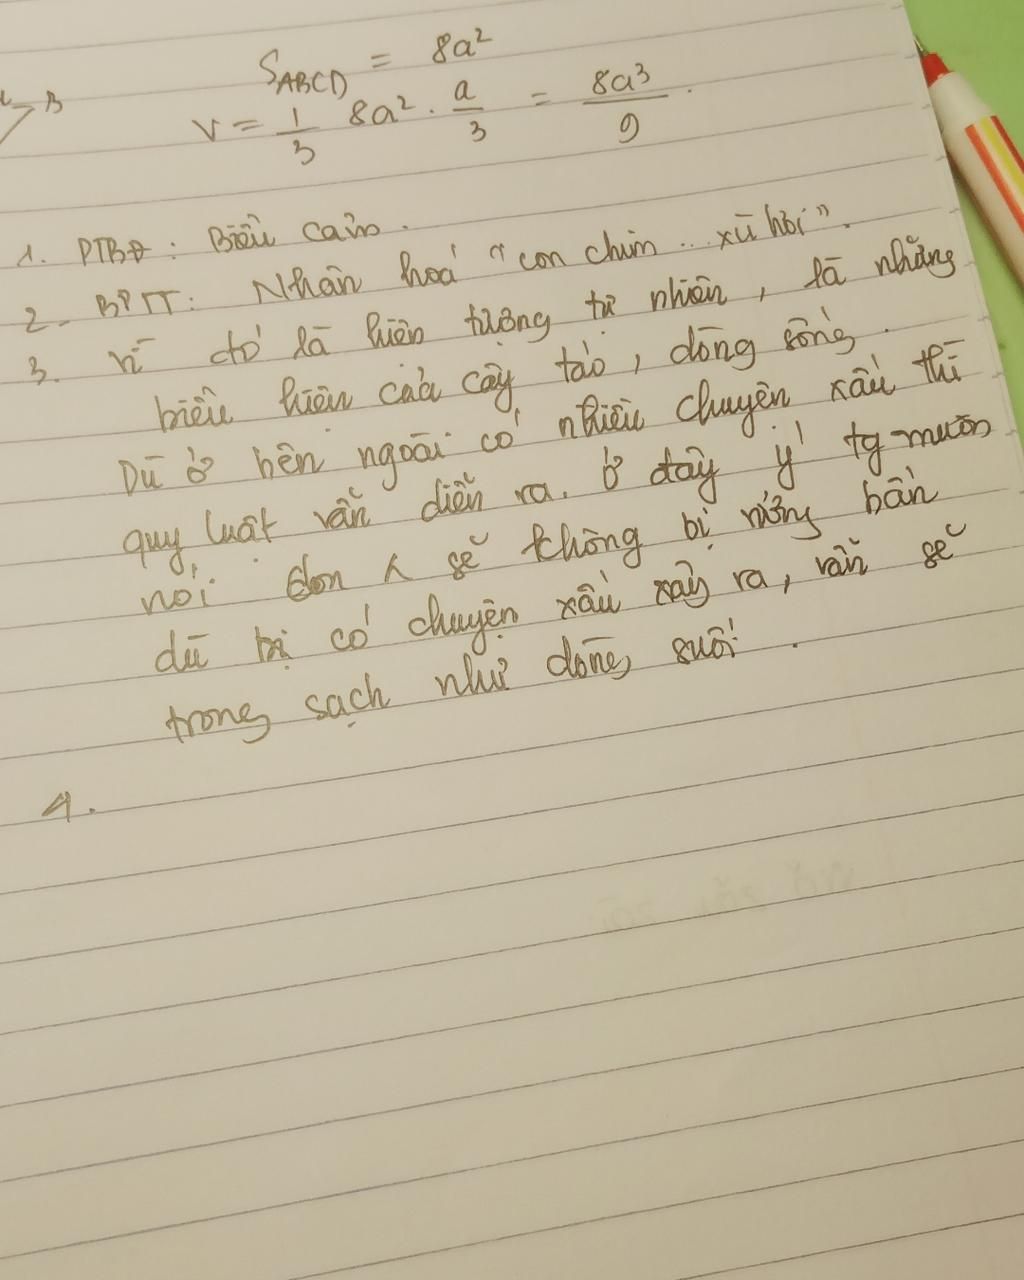 B
S_ABCD = 8a²
V = 1/3 8a² . a/3 = 8a³/9 .
1. PTBĐ : Biểu cảm .
2. BPTT : Nhân hoá "con chim ... xù hỏi".
3. Vì đó là hiện tượng tự nhiên , là những
biểu hiện của cây táo , dòng sông .
Dù ở bên ngoài có nhiều chuyện xấu thì
quy luật vẫn diễn ra. Ở đây ý tg muốn
nói con sẽ không bị vướng bẩn
dù có chuyện xấu xảy ra , vẫn sẽ
trong sạch như dòng suối .
4.